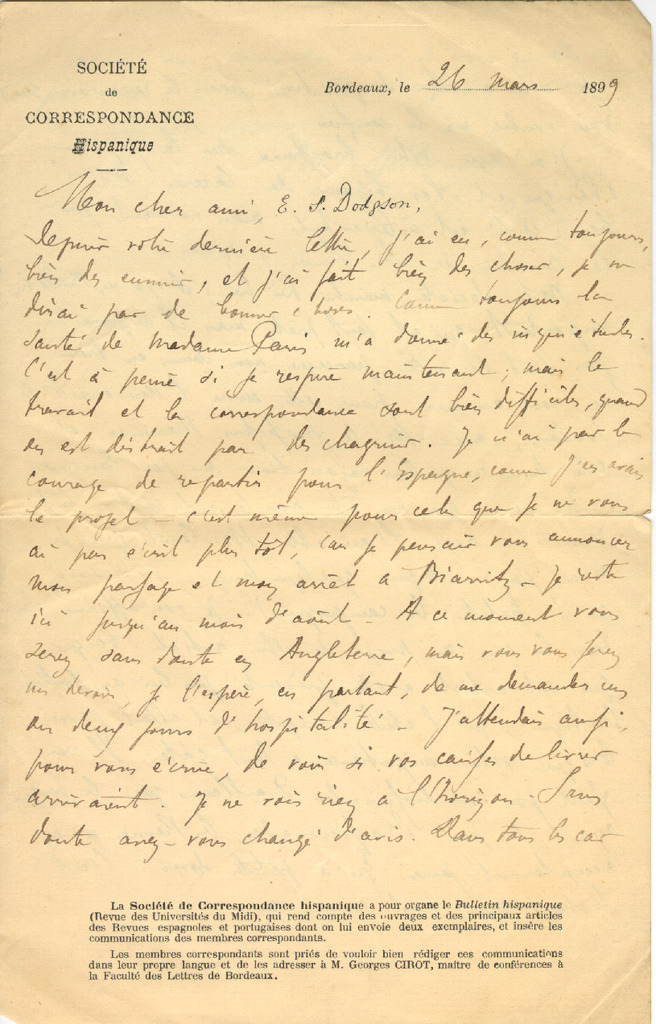 SOCIÉTÉ
de
CORRESPONDANCE
Hispanique
Bordeaux, le 26 mars 1899
Mon cher ami, E. S. Dodgson,
Depuis votre dernière lettre, j'ai eu, comme toujours,
bien des ennuis, et j'ai fait bien des choses, je ne
dirai pas de bonnes choses. Comme toujours la
santé de Madame Paris m'a donné des inquiétudes.
C'est à peine si je respire maintenant ; mais le
travail et la correspondance sont bien difficiles, quand
on est distrait par des chagrins. Je n'ai pas le
courage de repartir pour l'Espagne, comme j'en avais
le projet – c'est même pour cela que je ne vous
ai pas écrit plus tôt, car je pensais vous annoncer
mon passage et mon arrêt à Biarritz – Je reste
ici jusqu'au mois d'août – A ce moment vous
serez sans doute en Angleterre, mais vous vous ferez
un devoir, je l'espère, en partant, de me demander un
ou deux jours d'hospitalité – J'attendais aussi,
pour vous écrire, de voir si vos caisses de livres
arrivaient. Je ne vois rien à l'horizon – Sans
doute avez-vous changé d'avis. Dans tous les cas
La Société de Correspondance hispanique a pour organe le Bulletin hispanique
(Revue des Universités du Midi), qui rend compte des ouvrages et des principaux articles
des Revues espagnoles et portugaises dont on lui envoie deux exemplaires, et insère les
communications des membres correspondants.
Les membres correspondants sont priés de vouloir bien rédiger ces communications
dans leur propre langue et de les adresser à M. Georges CIROT, maître de conférences à
la Faculté des Lettres de Bordeaux.